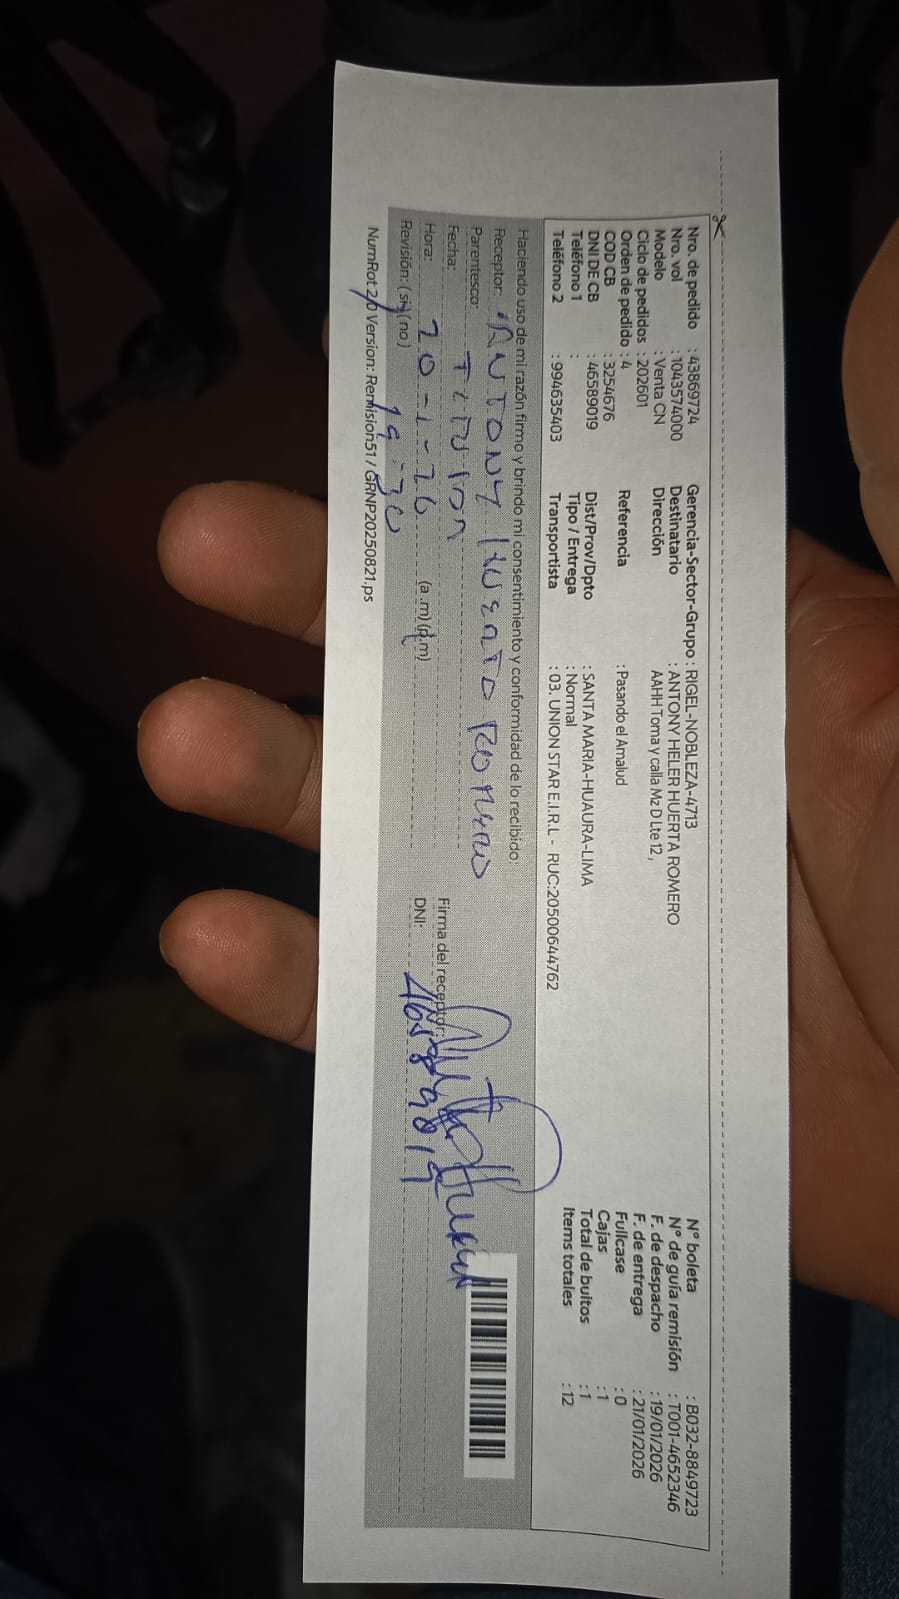 Nro. de pedido : 43869724
Nro. vol : 1043574000
Modelo : Venta CN
Ciclo de pedidos : 202601
Orden de pedido : 4
COD CB : 3254676
DNI DE CB : 46589019
Teléfono 1 :
Teléfono 2 : 994635403
Gerencia-Sector-Grupo : RIGEL-NOBLEZA-4713
Destinatario : ANTONY HELER HUERTA ROMERO
Dirección AAHH Toma y calla Mz D Lte 12,
Referencia : Pasando el Amalud
Dist/Prov/Dpto : SANTA MARIA-HUAURA-LIMA
Tipo / Entrega : Normal
Transportista : 03. UNION STAR E.I.R.L - RUC:20500644762
N° boleta : B032-8849723
N° de guía remisión : T001-4652346
F. de despacho : 19/01/2026
F. de entrega : 21/01/2026
Fullcase : 0
Cajas : 1
Total de bultos : 1
Items totales : 12
Haciendo uso de mi razón firmo y brindo mi consentimiento y conformidad de lo recibido:
Receptor: ANTONY HUERTA ROMERO
Parentesco:
Fecha: 20-1-26
Hora: 19:30 (a.m)(p.m)
Revisión: (si)(no)
Firma del receptor:
DNI: 46589019
NumRot 2/0 Version: Remision51 / GRNP20250821.ps